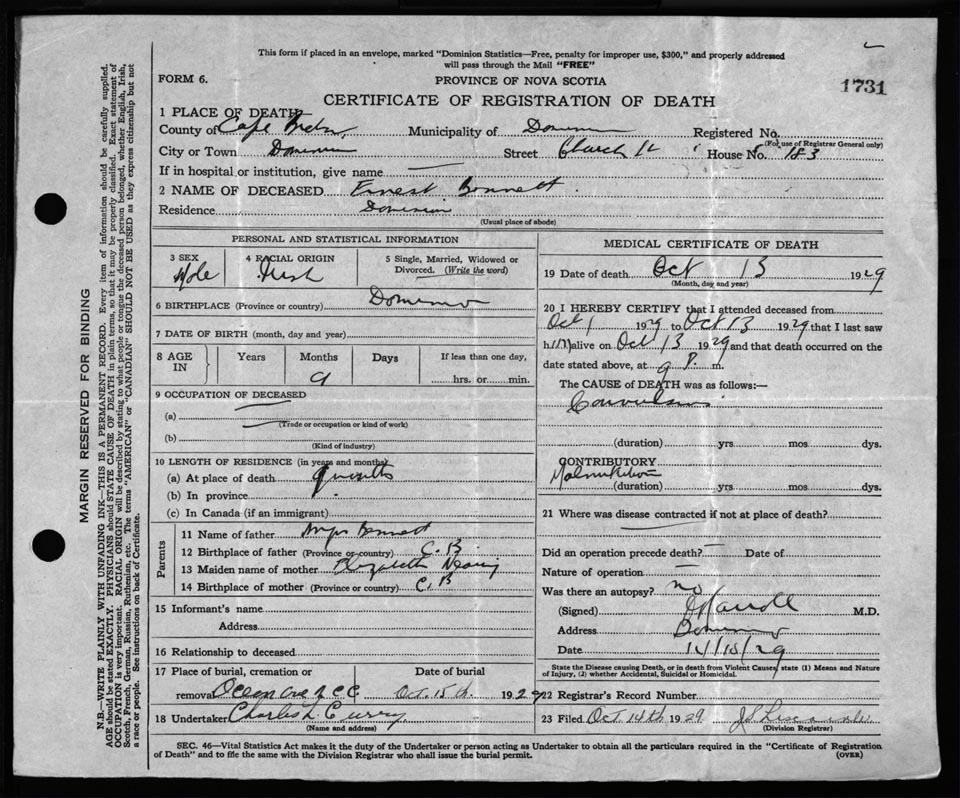 This form if placed in an envelope, marked "Dominion Statistics—Free, penalty for improper use, $300," and properly addressed
will pass through the Mail "FREE"
FORM 6.
PROVINCE OF NOVA SCOTIA
1731
CERTIFICATE OF REGISTRATION OF DEATH
1 PLACE OF DEATH
County of Cape Breton Municipality of Dominion Registered No.
(For use of Registrar General only)
City or Town Dominion Street Church St House No. 183
If in hospital or institution, give name
2 NAME OF DECEASED Ernest Bonnett
Residence Dominion
(Usual place of abode)
PERSONAL AND STATISTICAL INFORMATION
3 SEX 4 RACIAL ORIGIN 5 Single, Married, Widowed or
Divorced. (Write the word)
Male Irish
6 BIRTHPLACE (Province or country) Dominion
7 DATE OF BIRTH (month, day and year)
8 AGE IN Years Months Days If less than one day,
9 hrs. or min.
9 OCCUPATION OF DECEASED
(a)
(Trade or occupation or kind of work)
(b)
(Kind of industry)
10 LENGTH OF RESIDENCE (in years and months)
(a) At place of death 9 months
(b) In province
(c) In Canada (if an immigrant)
Parents
11 Name of father
12 Birthplace of father (Province or country) C. B.
13 Maiden name of mother Elizabeth
14 Birthplace of mother (Province or country) C. B
15 Informant's name
Address
16 Relationship to deceased
17 Place of burial, cremation or Date of burial
removal Oct. 15th 1929
18 Undertaker Charles L Curry
(Name and address)
MEDICAL CERTIFICATE OF DEATH
19 Date of death Oct 13 1929
(Month, day and year)
20 I HEREBY CERTIFY that I attended deceased from
Oct 1 1929 to Oct 13 1929 that I last saw
him alive on Oct 13 1929 and that death occurred on the
date stated above, at 9 P. m.
The CAUSE of DEATH was as follows:—
Convulsions
(duration) yrs. mos. dys.
CONTRIBUTORY
Malnutrition
(duration) yrs. mos. dys.
21 Where was disease contracted if not at place of death?
Did an operation precede death? — Date of
Nature of operation —
Was there an autopsy? no
(Signed) M.D.
Address Dominion
Date 14/10/29
State the Disease causing Death, or in death from Violent Causes, state (1) Means and Nature
of Injury, (2) whether Accidental, Suicidal or Homicidal.
22 Registrar's Record Number
23 Filed Oct 14th 1929
(Division Registrar)
SEC. 46—Vital Statistics Act makes it the duty of the Undertaker or person acting as Undertaker to obtain all the particulars required in the "Certificate of Registration
of Death" and to file the same with the Division Registrar who shall issue the burial permit.
(OVER)
MARGIN RESERVED FOR BINDING
N.B.—WRITE PLAINLY WITH UNFADING INK—THIS IS A PERMANENT RECORD. Every item of information should be carefully supplied.
AGE should be stated EXACTLY. PHYSICIANS should STATE CAUSE OF DEATH in plain terms, so that it may be properly classified. Exact statement of
OCCUPATION is very important. RACIAL ORIGIN will be described by stating to what people or tongue the deceased person belonged, whether English, Irish,
Scotch, French, German, Russian, Ruthenian, etc. The terms "AMERICAN" or "CANADIAN" SHOULD NOT BE USED as they express citizenship but not
a race or people. See instructions on back of Certificate.